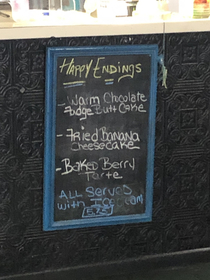 Happy Endings
- Warm Chocolate
Fudge Butt Cake
- Fried Banana
Cheesecake
- Baked Berry
Torte
All Serves
with Icecream